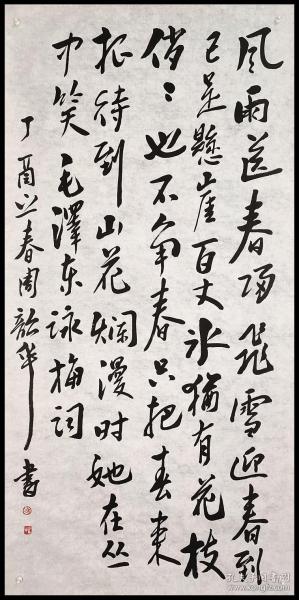 风雨送春归飛雪迎春到
已是懸崖百丈冰猶有花枝
俏〻也不争春只把春来
报待到山花烂漫时她在丛
中笑 毛澤东咏梅词
丁酉 春周 华 书